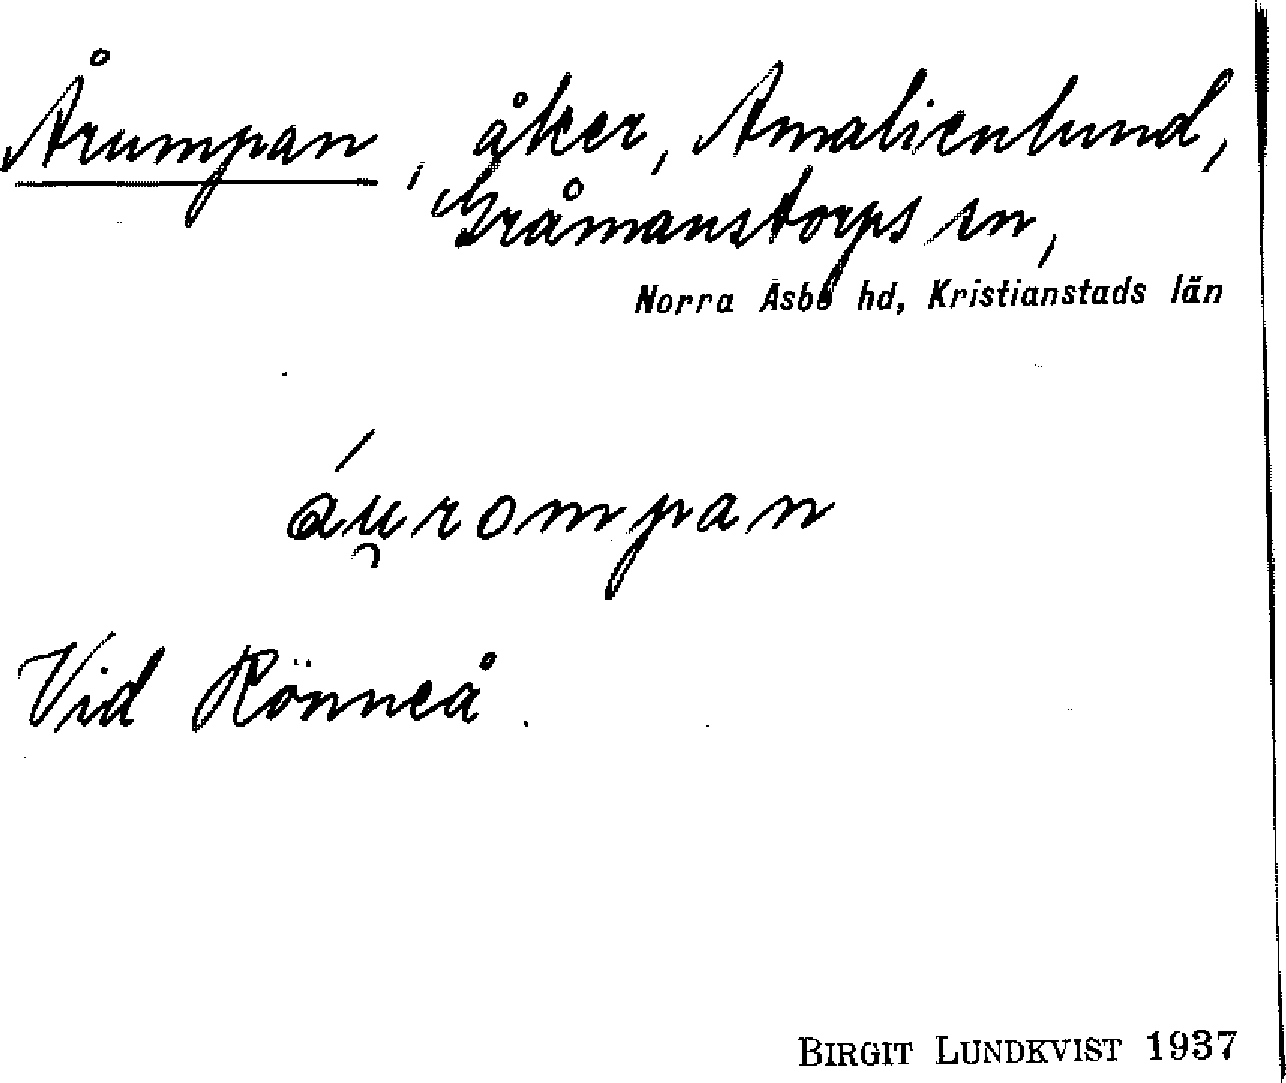 Årumpan, åker, Amalienlund,
Gråmanstorps sn,
Norra Åsbo hd, Kristianstads län
áu̯rompan
Vid Rönneå.
BIRGIT LUNDKVIST 1937